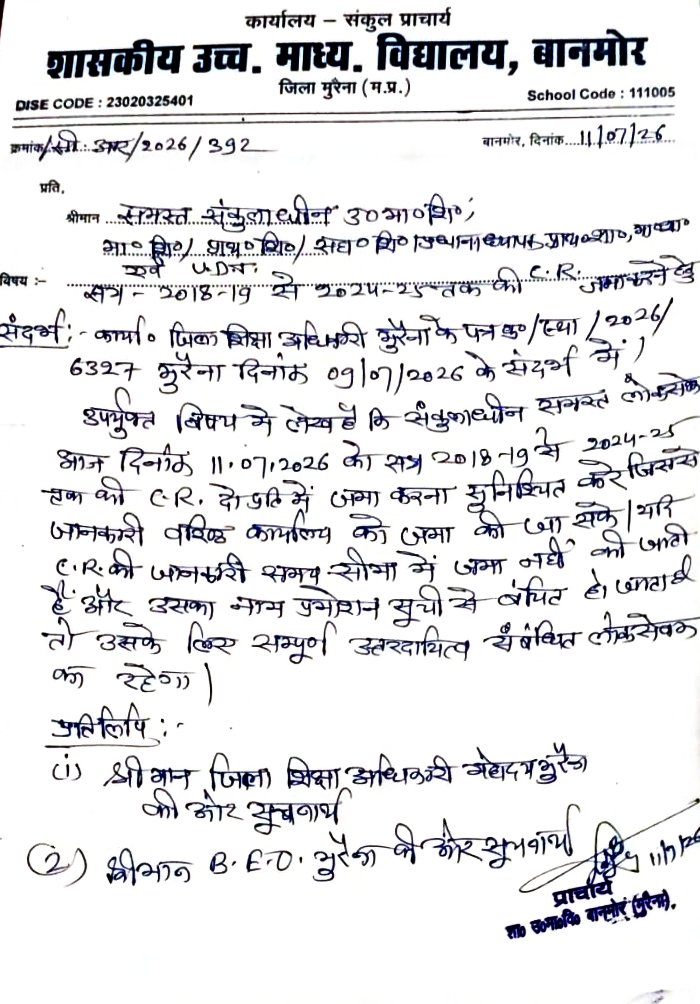 कार्यालय – संकुल प्राचार्य
शासकीय उच्च. माध्य. विद्यालय, बानमोर
जिला मुरैना (म.प्र.)
DISE CODE : 23020325401
School Code : 111005
क्रमांक/सी. आर/2026/392
बानमोर, दिनांक....11/07/26
प्रति,
श्रीमान समस्त संकुलाधीन उ०मा०शि०,
मा० शि०/ प्राथ० शि०/ सहा० शि०/प्रधानाध्यापक प्राथ०शा०, मा०शा०
एवं U.D.T.
विषय :- सत्र - 2018-19 से 2024-25 तक की C.R. जमा करने हेतु
संदर्भ :- कार्या० जिला शिक्षा अधिकारी मुरैना के पत्र क्र०/स्था/2026/
6327 मुरैना दिनांक 09/07/2026 के संदर्भ में।
उपर्युक्त विषय में लेख है कि संकुलाधीन समस्त लोकसेवक
आज दिनांक 11.07.2026 को सत्र 2018-19 से 2024-25
तक की C.R. दो प्रति में जमा करना सुनिश्चित करें जिससे
जानकारी वरिष्ठ कार्यालय को जमा की जा सके। यदि
C.R. की जानकारी समय-सीमा में जमा नहीं की जाती
है और उसका नाम प्रमोशन सूची से वंचित हो जाता है
तो उसके लिए सम्पूर्ण उत्तरदायित्व संबंधित लोकसेवक
का रहेगा।
प्रतिलिपि :-
(1) श्रीमान जिला शिक्षा अधिकारी महोदय मुरैना
की ओर सूचनार्थ
(2) श्रीमान B.E.O. मुरैना की ओर सूचनार्थ
11/7/26
प्राचार्य
शा० उ०मा०वि० बानमोर (मुरैना).